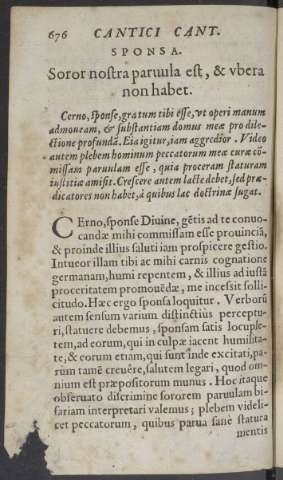 676 CANTICI CANT.
SPONSA.
Soror nostra paruula est, & vbera
non habet.
Cerno, sponse, gratum tibi esse, vt operi manum
admoueam, & substantiam domus meæ pro dile-
ctione profundā. Eia igitur, iam aggredior. Video
autem plebem hominum peccatorum meæ curæ cō-
missam paruulam esse, quia proceram staturam
iustitiæ amisit. Crescere autem lacte debet, sed præ-
dicatores non habet, à quibus lac doctrinæ sugat.
CErno, sponse Diuine, gētis ad te conuo-
candæ mihi commissam esse prouinciā,
& proinde illius saluti iam prospicere gestio.
Intueor illam tibi ac mihi carnis cognatione
germanam, humi repentem, & illius ad iustā
proceritatem promouēdæ, me incessit solli-
citudo. Hæc ergo sponsa loquitur. Verborū
autem sensum varium distinctiùs perceptu-
ri, statuere debemus, sponsam satis locuple-
tem, ad eorum, qui in culpæ iacent humilita-
te, & eorum etiam, qui sunt inde excitati, pa-
rùm tamē creuêre, salutem legari, quod om-
nium est præpositorum munus. Hoc itaque
obseruato discrimine sororem paruulam bi-
fariam interpretari valemus; plebem videli-
cet peccatorum, quibus parua sanè statura
mentis